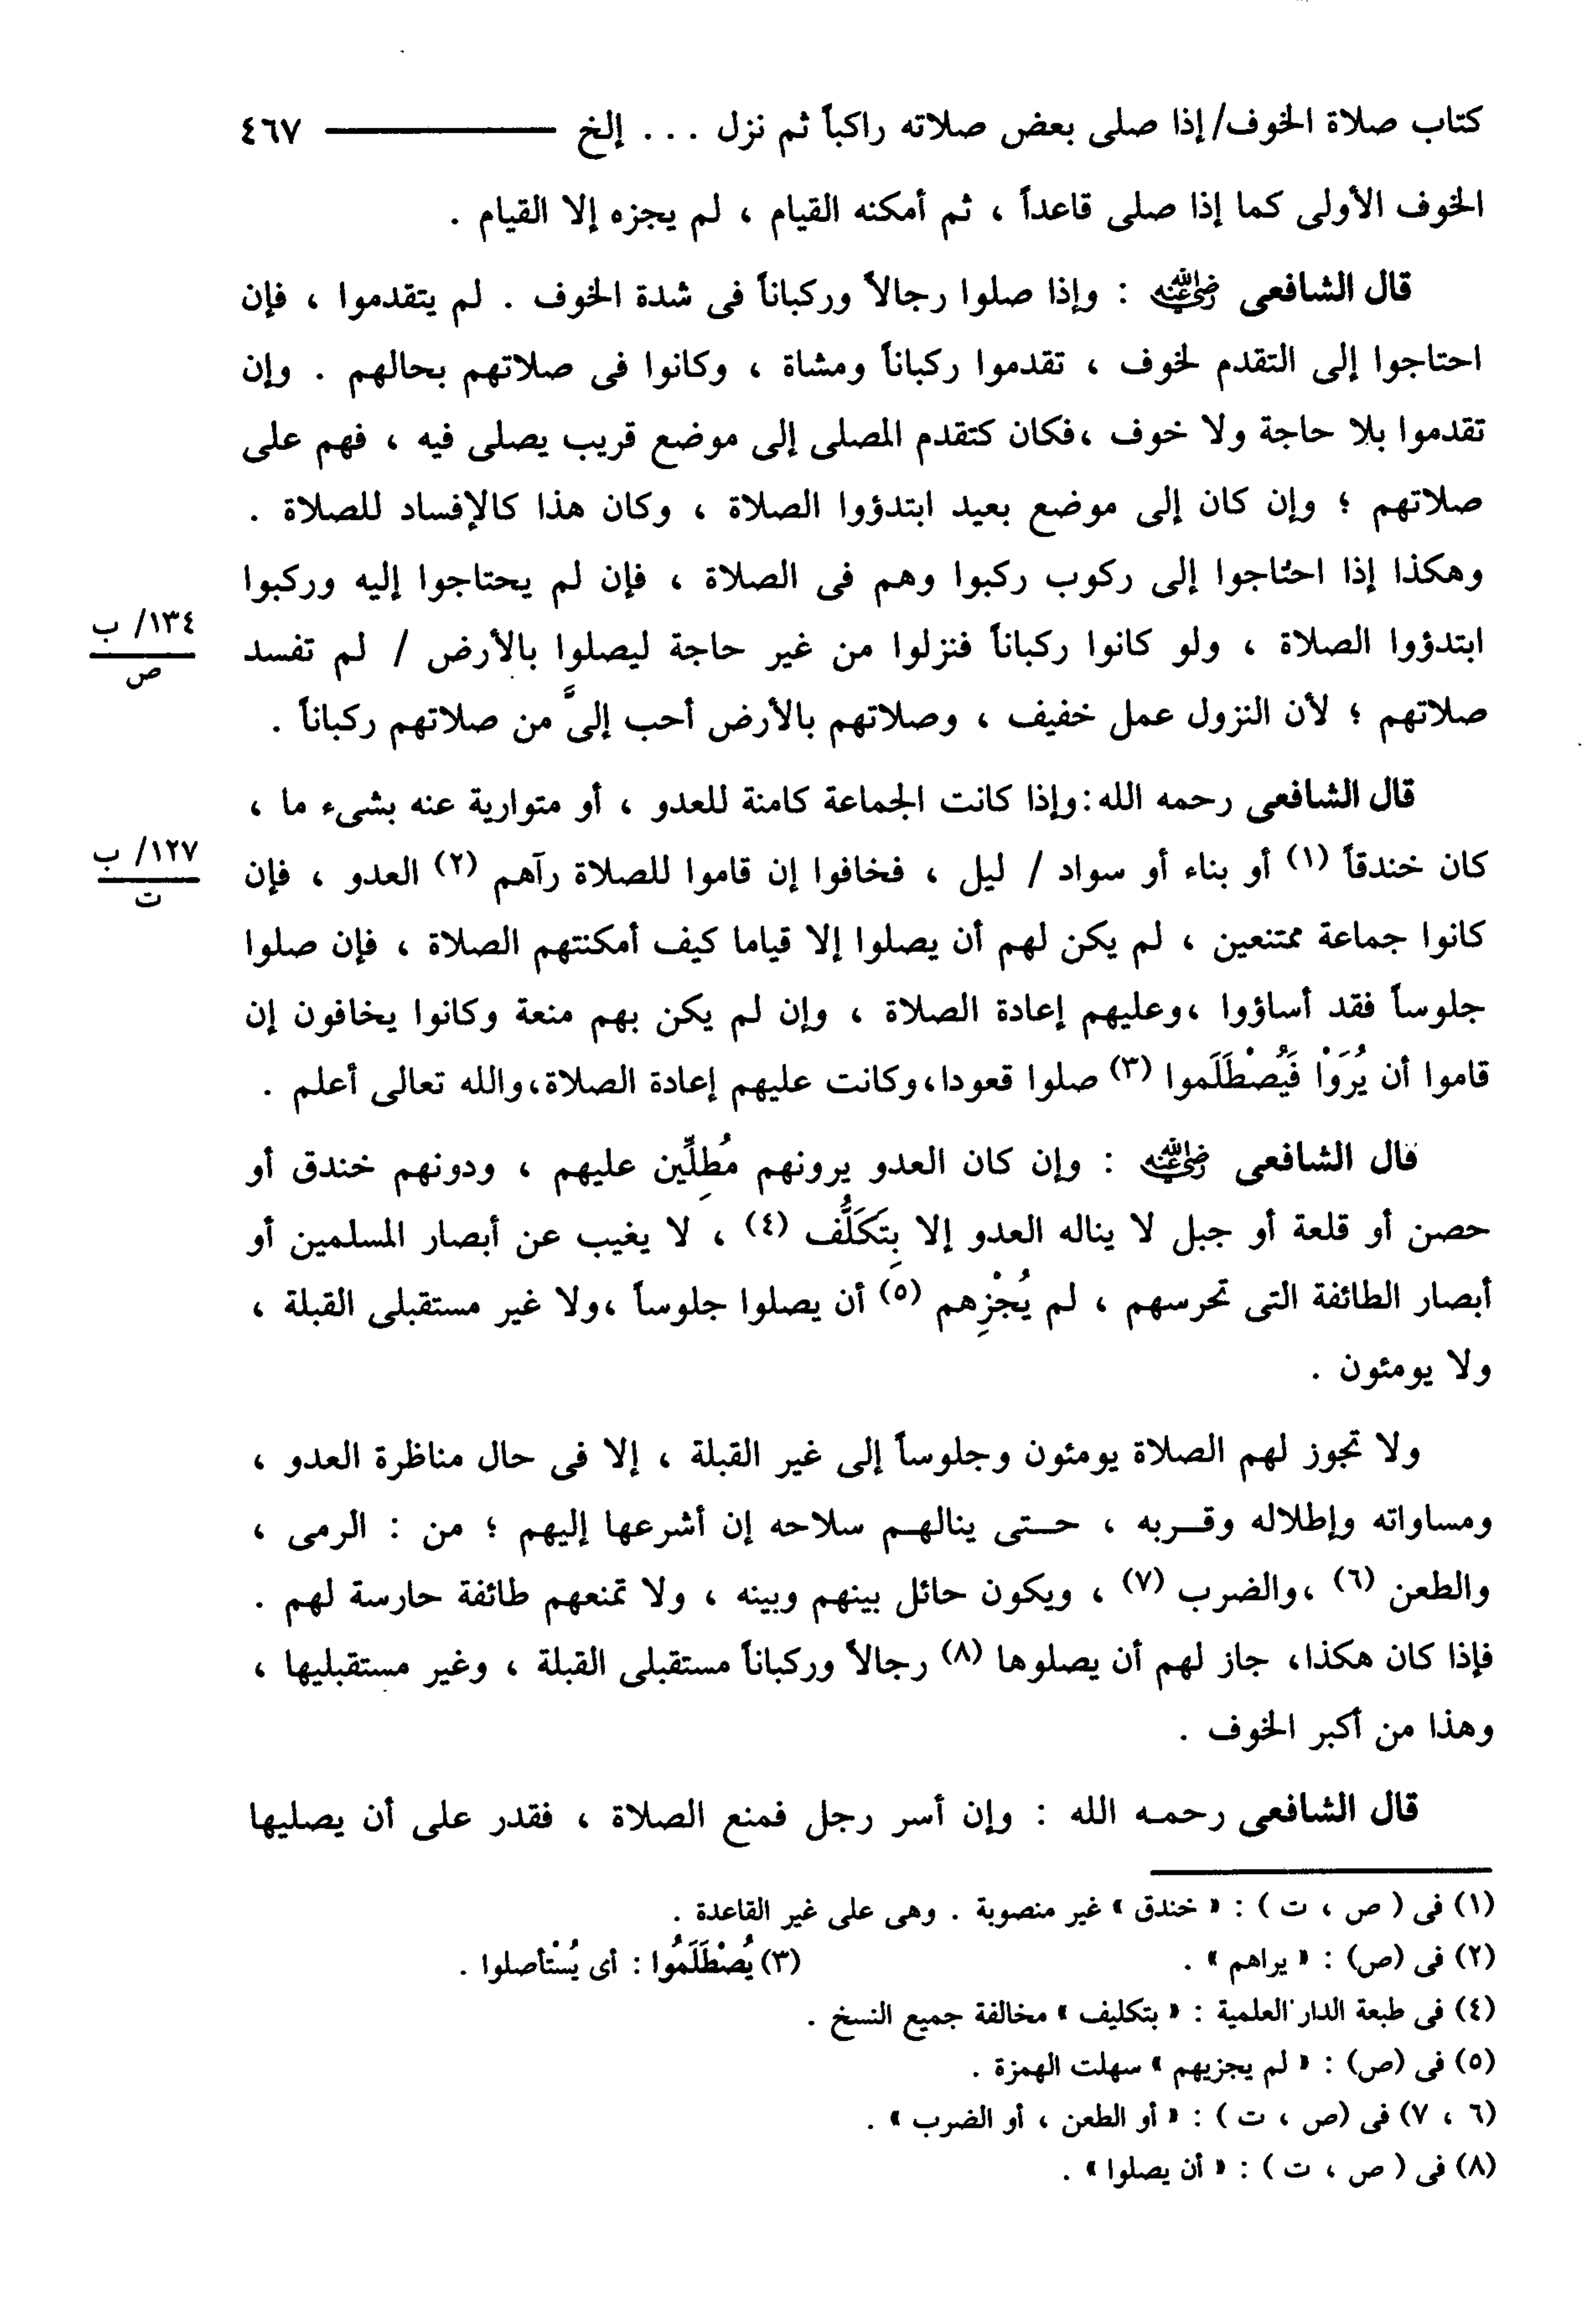 كتاب صلاة الخوف/ إذا صلى بعض صلاته راكباً ثم نزل . . . إلخ ٤٦٧
الخوف الأولى كما إذا صلى قاعداً ، ثم أمكنه القيام ، لم يجزه إلا القيام .
قال الشافعى رضي الله عنه : وإذا صلوا رجالاً وركباناً فى شدة الخوف . لم يتقدموا ، فإن
احتاجوا إلى التقدم لخوف ، تقدموا ركباناً ومشاة ، وكانوا فى صلاتهم بحالهم . وإن
تقدموا بلا حاجة ولا خوف ،فكان كتقدم المصلى إلى موضع قريب يصلى فيه ، فهم على
صلاتهم ؛ وإن كان إلى موضع بعيد ابتدؤوا الصلاة ، وكان هذا كالإفساد للصلاة .
وهكذا إذا احتاجوا إلى ركوب ركبوا وهم فى الصلاة ، فإن لم يحتاجوا إليه وركبوا
ابتدؤوا الصلاة ، ولو كانوا ركباناً فنزلوا من غير حاجة ليصلوا بالأرض / لم تفسد
١٣٤/ ب
ص
صلاتهم ؛ لأن النزول عمل خفيف ، وصلاتهم بالأرض أحب إلىَّ من صلاتهم ركباناً .
قال الشافعى رحمه الله :وإذا كانت الجماعة كامنة للعدو ، أو متوارية عنه بشىء ما ،
كان خندقاً (١) أو بناء أو سواد / ليل ، فخافوا إن قاموا للصلاة رآهم (٢) العدو ، فإن
١٢٧/ ب
ت
كانوا جماعة ممتنعين ، لم يكن لهم أن يصلوا إلا قياما كيف أمكنتهم الصلاة ، فإن صلوا
جلوساً فقد أساؤوا ،وعليهم إعادة الصلاة ، وإن لم يكن بهم منعة وكانوا يخافون إن
قاموا أن يُرَوْا فَيُصْطَلَموا (٣) صلوا قعودا،وكانت عليهم إعادة الصلاة،والله تعالى أعلم .
قال الشافعى رضي الله عنه : وإن كان العدو يرونهم مُطِلِّين عليهم ، ودونهم خندق أو
حصن أو قلعة أو جبل لا يناله العدو إلا بِتَكَلُّف (٤) ، لا يغيب عن أبصار المسلمين أو
أبصار الطائفة التى تحرسهم ، لم يُجْزِهم (٥) أن يصلوا جلوساً ،ولا غير مستقبلى القبلة ،
ولا يومئون .
ولا تجوز لهم الصلاة يومئون وجلوساً إلى غير القبلة ، إلا فى حال مناظرة العدو ،
ومساواته وإطلاله وقـربه ، حـتى ينالهـم سلاحه إن أشرعها إليهم ؛ من : الرمى ،
والطعن (٦) ،والضرب (٧) ، ويكون حائل بينهم وبينه ، ولا تمنعهم طائفة حارسة لهم .
فإذا كان هكذا، جاز لهم أن يصلوها (٨) رجالاً وركباناً مستقبلى القبلة ، وغير مستقبليها ،
وهذا من أكبر الخوف .
قال الشافعى رحمـه الله : وإن أسر رجل فمنع الصلاة ، فقدر على أن يصليها
(١) فى ( ص ، ت ) : « خندق » غير منصوبة . وهى على غير القاعدة .
(٢) فى (ص) : « يراهم » . (٣) يُصْطَلَمُوا : أى يُسْتأصلوا .
(٤) فى طبعة الدار العلمية : « بتكليف » مخالفة جميع النسخ .
(٥) فى (ص) : « لم يجزيهم » سهلت الهمزة .
(٦ ، ٧) فى (ص ، ت ) : « أو الطعن ، أو الضرب » .
(٨) فى ( ص ، ت ) : « أن يصلوا » .